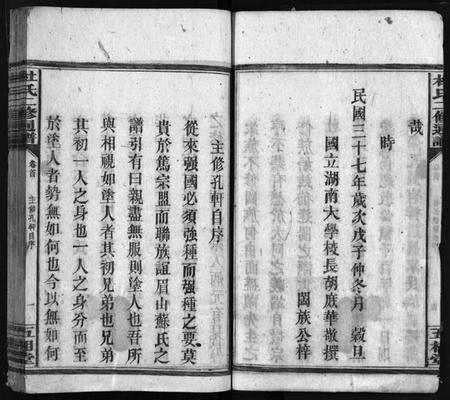 哉
時
民國三十七年歲次戊子仲冬月 穀旦
國立湖南大學校長胡庶華敬撰
闔族公梓
主修孔軒自序
從來强國必須强種而强種之要莫
貴於篤宗盟而聯族誼眉山蘇氏之
譜引有曰親盡無服則塗人也吾所
與相視如塗人者其初兄弟也兄弟
其初一人之身也一人之身分而至
於塗人者勢無如何也今以無如何
杜氏二修通譜
卷首
主修孔軒自序
一